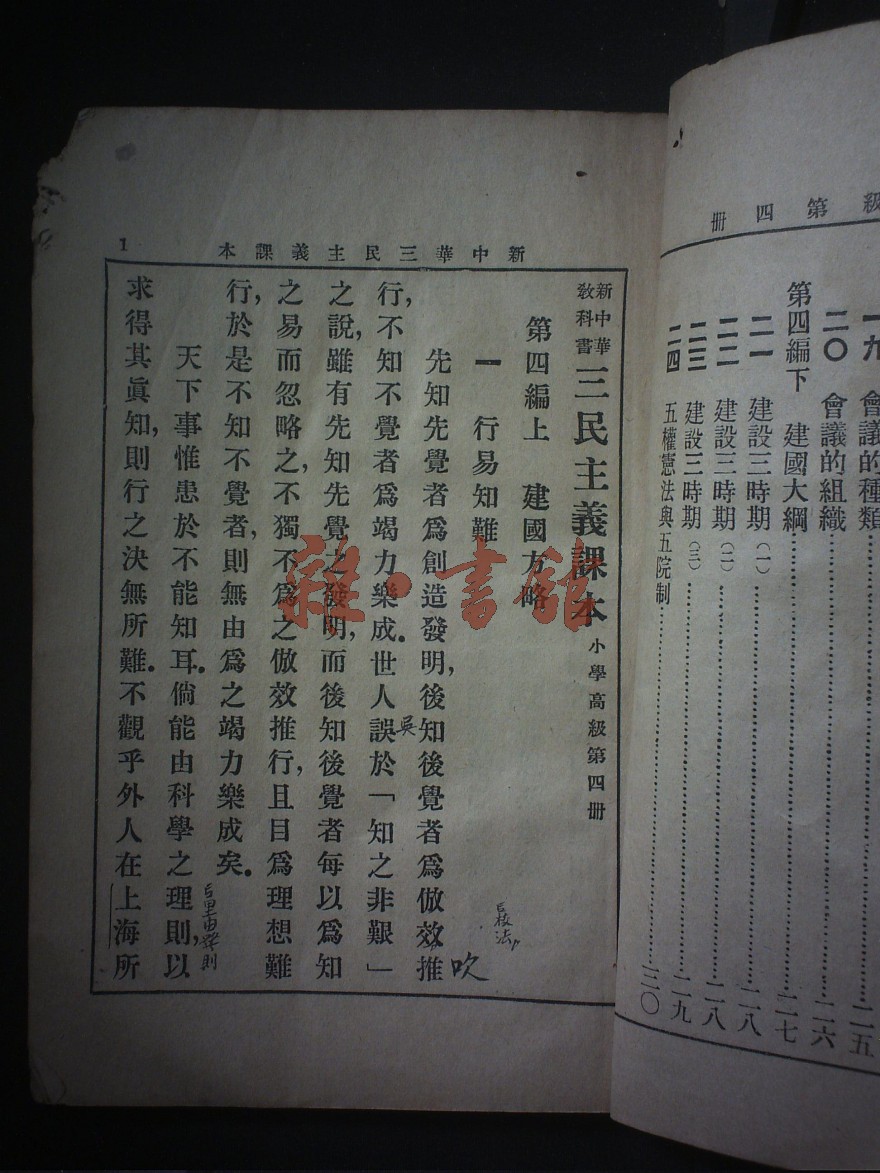 級第四冊
一九 會議的種類 二五
二〇 會議的組織 二六
第四編下 建國大綱 二七
二一 建設三時期(一) 二八
二二 建設三時期(二) 二八
二三 建設三時期(三) 二九
二四 五權憲法與五院制 三〇
新中華三民主義課本
1
新中華
教科書
三民主義課本 小學高級第四冊
第四編上 建國方略
一 行易知難
先知先覺者爲創造發明,後知後覺者爲倣效推
行,不知不覺者爲竭力樂成。世人誤於「知之非艱」
之說,雖有先知先覺之發明,而後知後覺者每以爲知
之易而忽略之,不獨不爲之倣效推行,且目爲理想難
行,於是不知不覺者,則無由爲之竭力樂成矣。
天下事惟患於不能知耳。倘能由科學之理則,以
求得其眞知,則行之決無所難。不觀乎外人在上海所
吹
吳
雜·書館